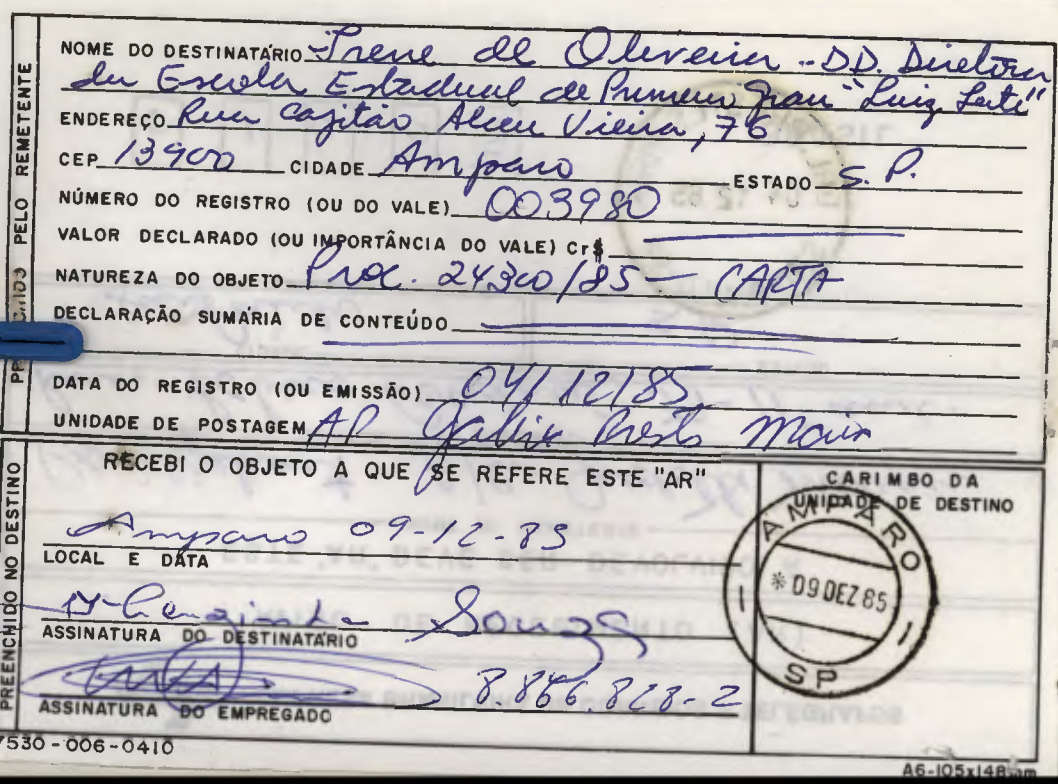 NOME DO DESTINATÁRIO Irene de Oliveira - DD. Diretora
da Escola Estadual de Primeiro Grau "Luiz Leite"
ENDEREÇO Rua Capitão Alceu Vieira, 76
CEP 13900 CIDADE Amparo ESTADO S. P.
NÚMERO DO REGISTRO (OU DO VALE) 003980
VALOR DECLARADO (OU IMPORTÂNCIA DO VALE) Cr$
NATUREZA DO OBJETO Proc. 24300/85 - CARTA
DECLARAÇÃO SUMÁRIA DE CONTEÚDO
DATA DO REGISTRO (OU EMISSÃO) 04/12/85
UNIDADE DE POSTAGEM AP Prestes Maia
PELO REMETENTE
RECEBI O OBJETO A QUE SE REFERE ESTE "AR"
Amparo 09-12-85
LOCAL E DATA
Souza
ASSINATURA DO DESTINATÁRIO
8.866.828-2
ASSINATURA DO EMPREGADO
PREENCHIDO NO DESTINO
CARIMBO DA
UNIDADE DE DESTINO
AMPARO
* 09 DEZ 85
SP
7530-006-0410
A6-105x148mm